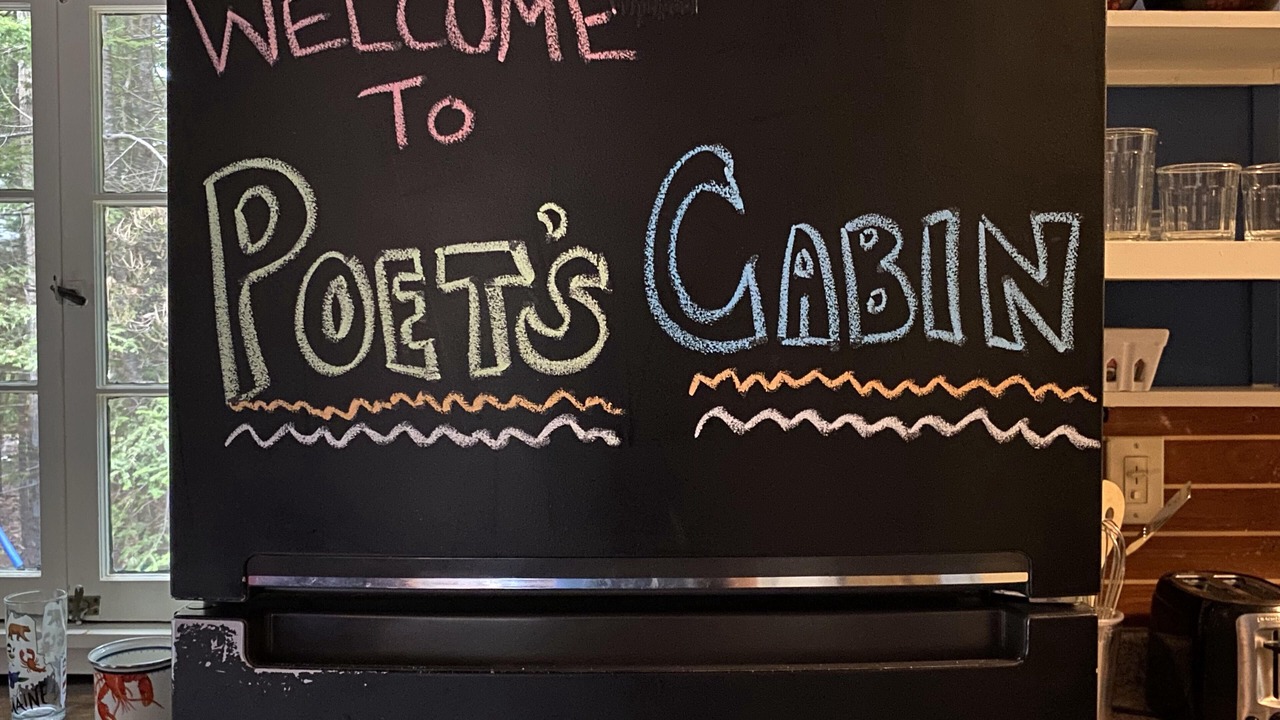 WELCOME
TO
POET'S CABIN
MAINE